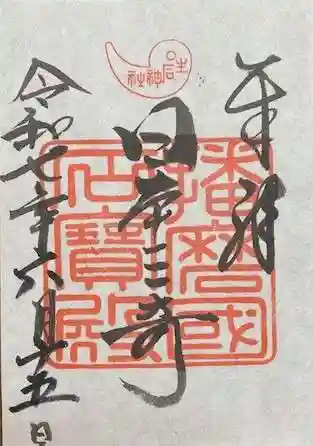 奉拝
生石神社
日本三奇
播磨国
石寶殿
令和七年六月十五日